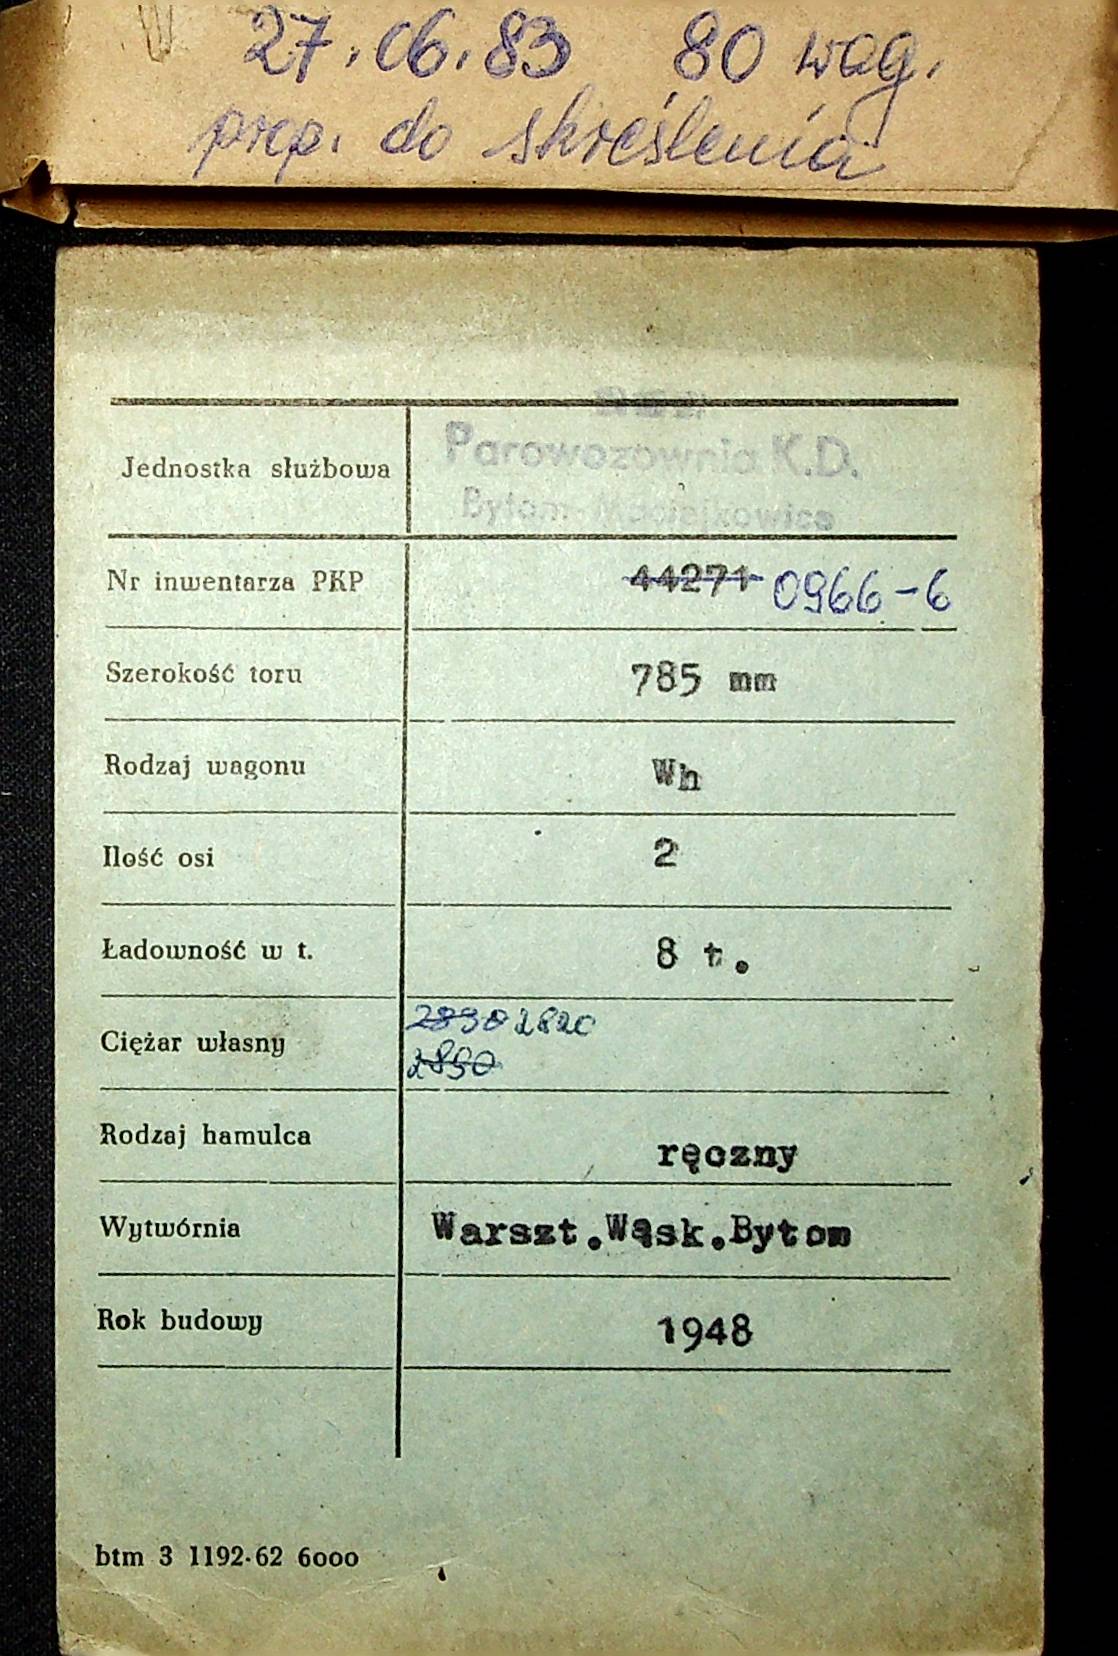 27.06.83 80 wag.
prop. do skreślenia
Jednostka służbowa
Parowozownia K.D.
Bytom-Maciejkowice
Nr inwentarza PKP 44271 0966-6
Szerokość toru 785 mm
Rodzaj wagonu Wh
Ilość osi 2
Ładowność w t. 8 t.
Ciężar własny 2820
2890
Rodzaj hamulca ręczny
Wytwórnia Warszt.Wąsk.Bytom
Rok budowy 1948
btm 3 1192-62 6000